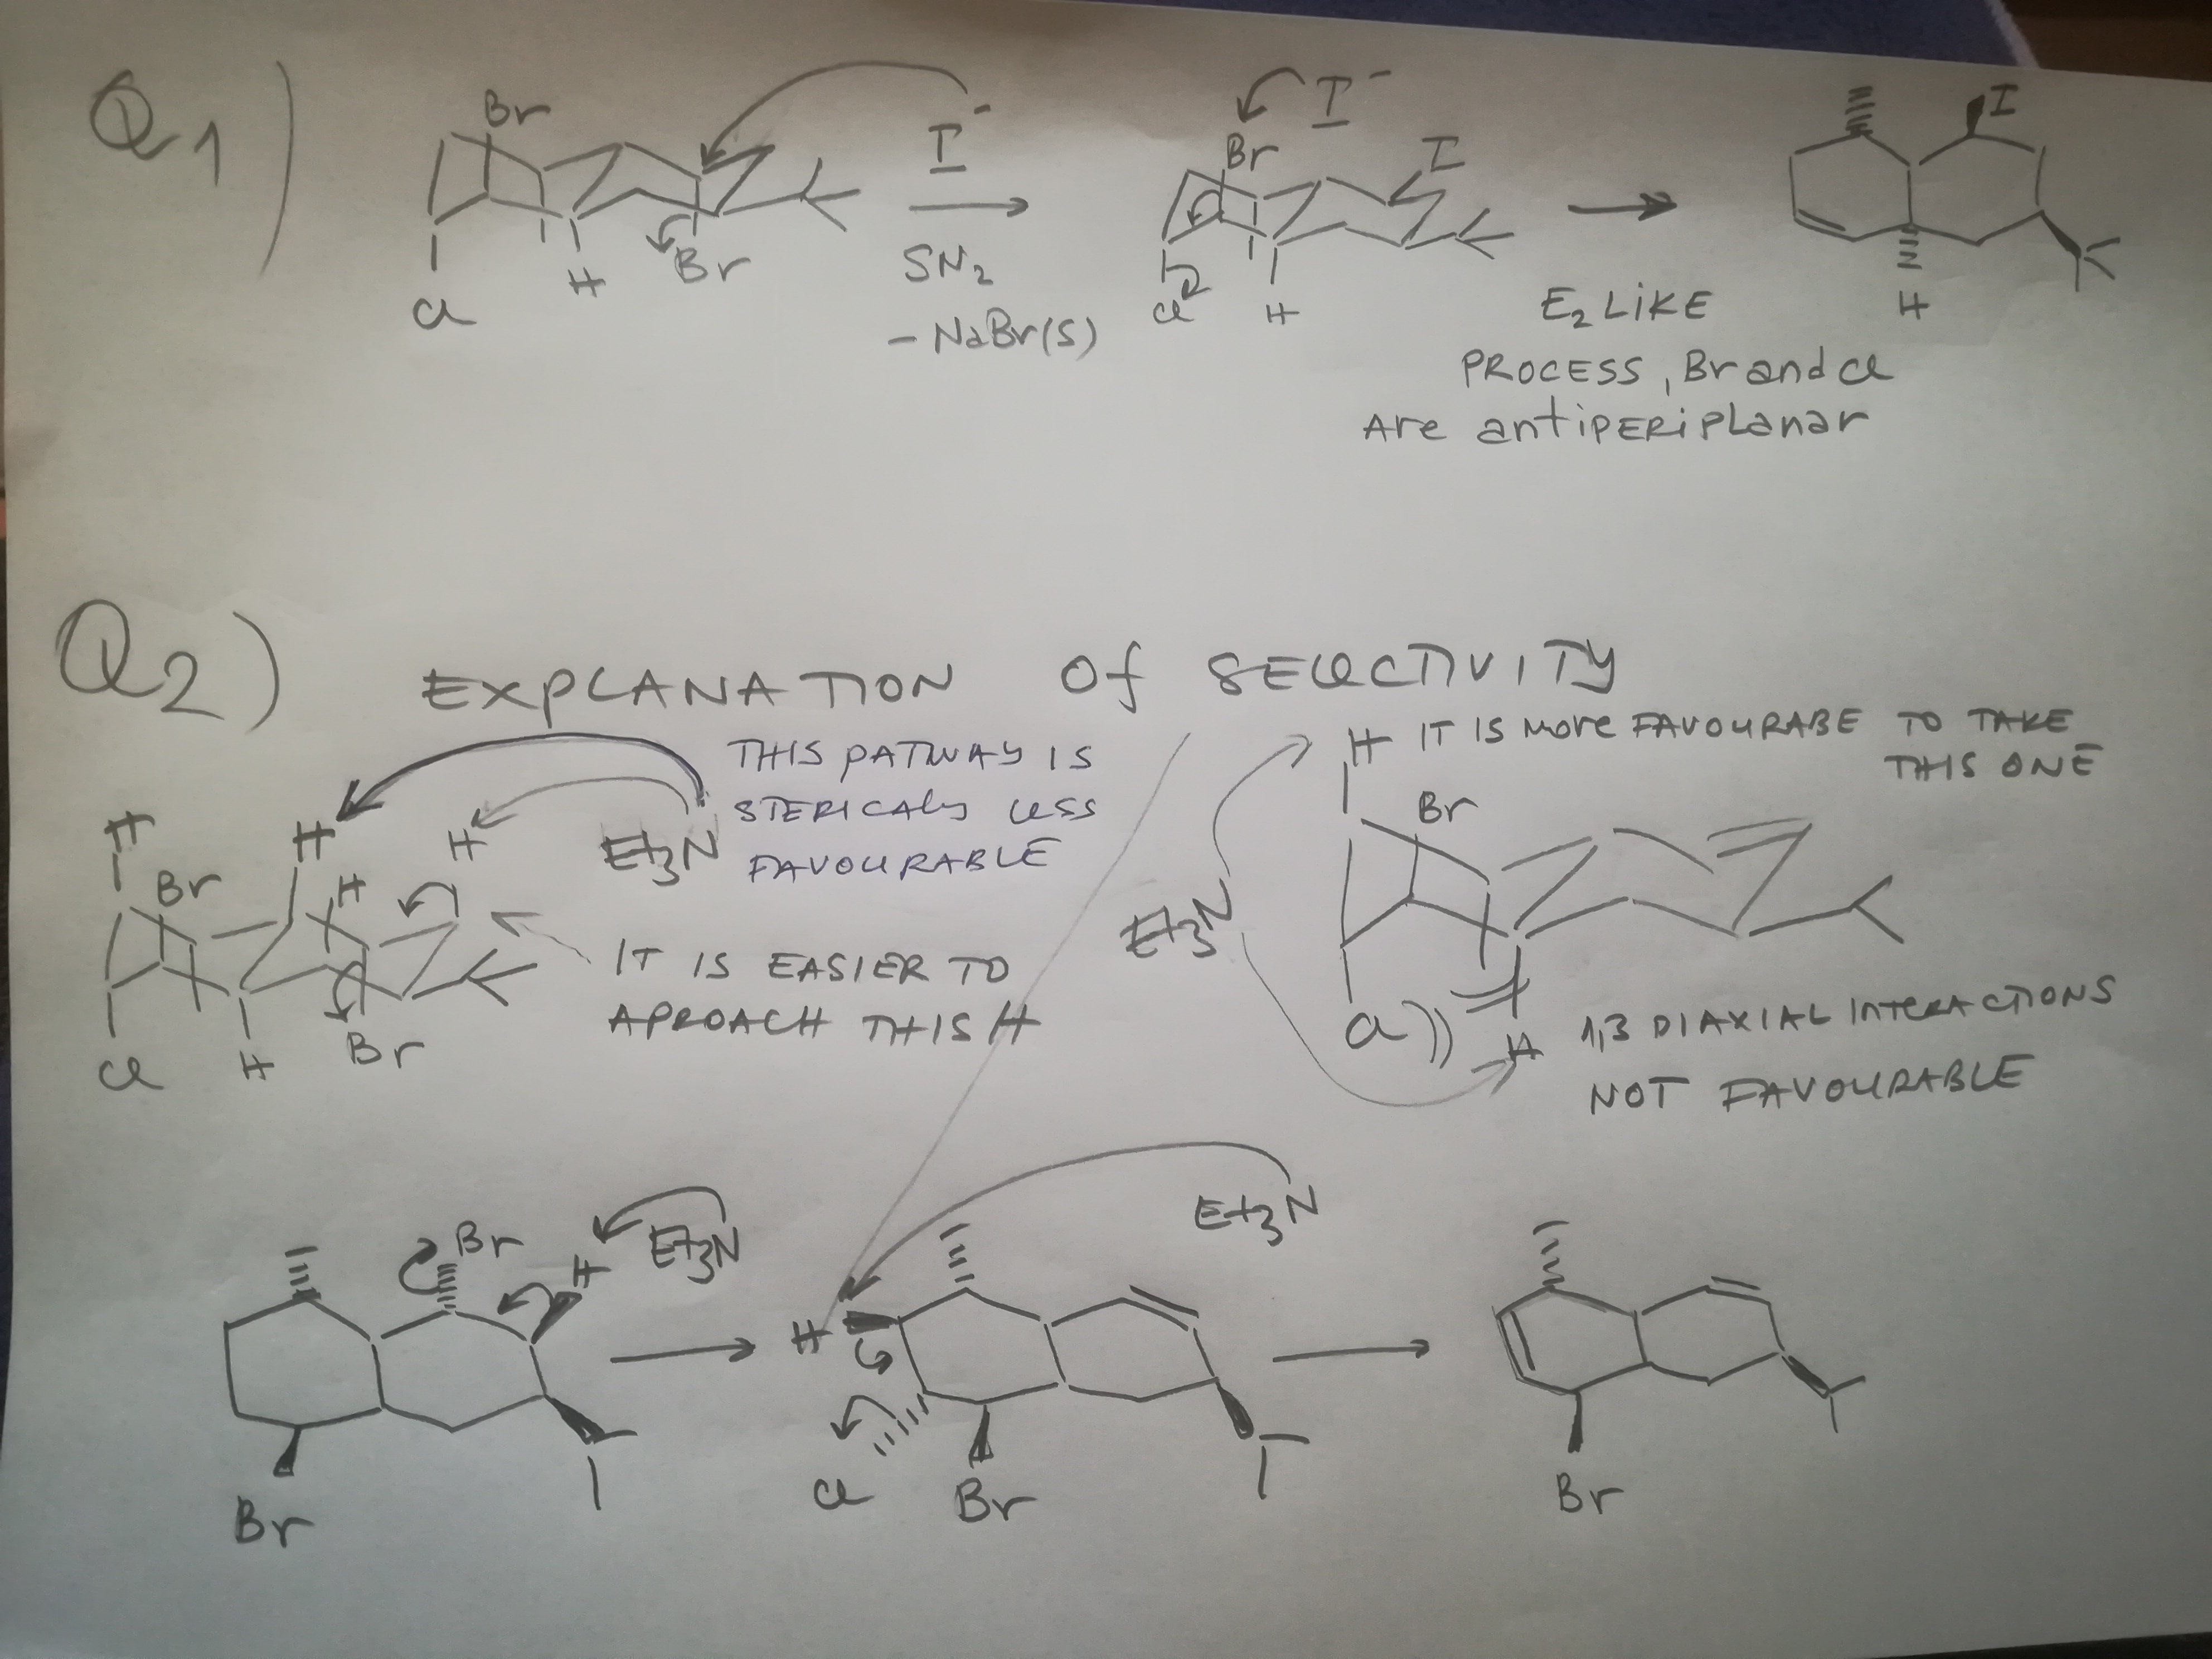 Q1)
Br
I⁻
Cl
H
Br
SN2
- NaBr(s)
I⁻
Br
I
Cl
H
I
H
E2 LiKE
PROCESS, Br and Cl
Are antiPERiPlanar
Q2)
EXPLANATION Of SELECTIVITY
THIS PATWAY IS
STERICALy LESS
FAVOURABLE
H
H
H
Et3N
Br
H
IT IS EASIER TO
APROACH THIS H
Cl
H
Br
H IT IS More FAVOURABE TO TAKE
THIS ONE
Br
Et3N
Cl
H
1,3 DIAXIAL INTERACTIONS
NOT FAVOURABLE
Br
H
Et3N
Br
H
Et3N
Cl
Br
Br